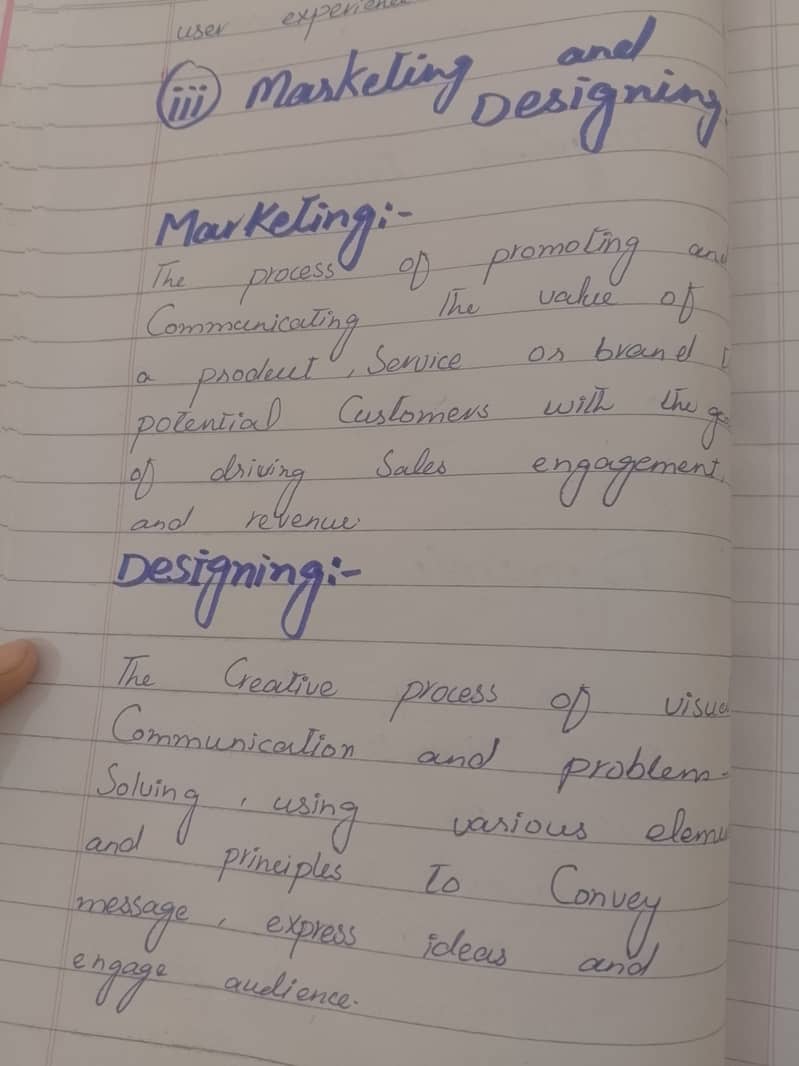 user experience
(iii) Marketing and
Designing
Marketing:-
The process of promoting and
Communicating The value of
a product, Service or brand
potential Customers with the
of driving Sales engagement,
and revenue.
Designing:-
The Creative process of
Communication and problem-
Solving, using various
and principles To Convey
message, express ideas and
engage audience.